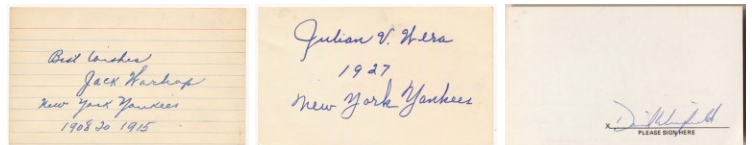 Best Wishes
Jack Warhop
New York Yankees
1908 to 1915
Julian V. Wera
1927
New York Yankees
x David Winfield
PLEASE SIGN HERE